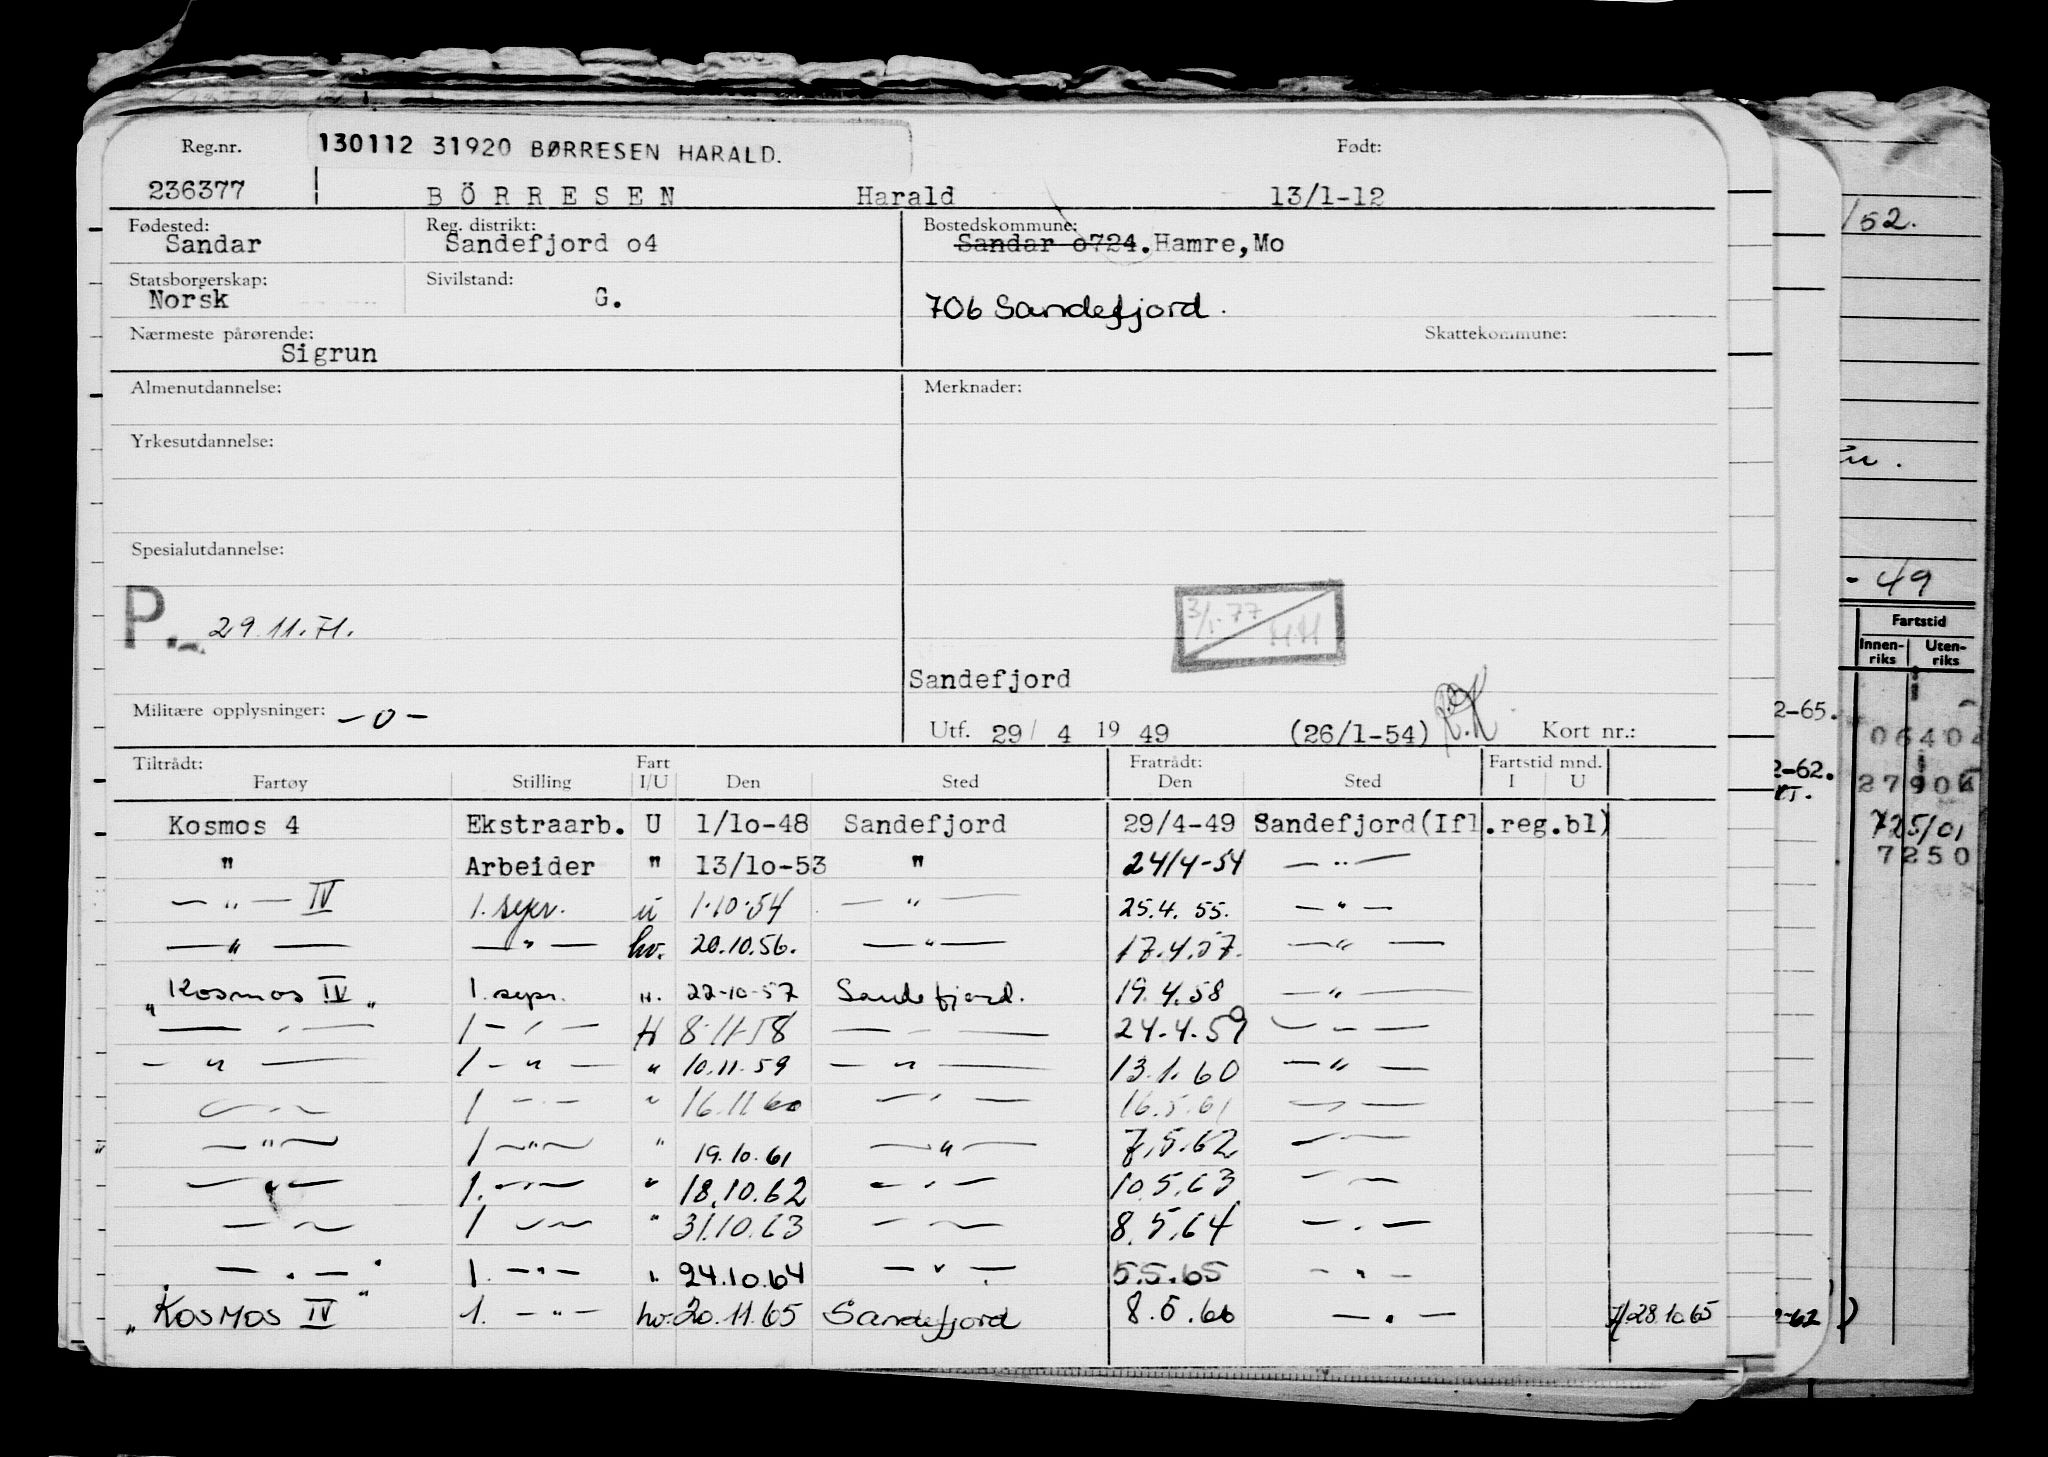 Reg.nr. 130112 31920 BØRRESEN HARALD. Født:
236377 BÖRRESEN Harald 13/1-12
Fødested: Reg. distrikt: Bostedskommune:
Sandar Sandefjord o4 Sandar o724. Hamre, Mo
Statsborgerskap: Sivilstand:
Norsk G. 706 Sandefjord.
Nærmeste pårørende: Skattekommune:
Sigrun
Almenutdannelse: Merknader:
Yrkesutdannelse:
Spesialutdannelse:
P. 29.11.71. 3/1-77 HH
Sandefjord
Militære opplysninger: -0- Utf. 29/ 4 19 49 (26/1-54) Kort nr.:
Tiltrådt: Fart Fratrådt: Fartstid mnd.
Fartøy Stilling I/U Den Sted Den Sted I U
Kosmos 4 Ekstraarb. U 1/1o-48 Sandefjord 29/4-49 Sandefjord(Ifl.reg.bl)
" Arbeider " 13/1o-53 " 24/4-54 — " —
— " — IV 1. sepr. u 1.10.54 — " — 25.4.55. — " —
— " — — " — hv. 20.10.56. — " — 17.4.57. — " —
"Kosmos IV" 1. sepr. H. 22-10-57 Sandefjord. 19.4.58 — " —
— " — 1 — " — H 8-11-58 — " — 24.4.59 — " —
— " — 1 — " — " 10.11.59 — " — 13.1.60 — " —
— " — 1 — " — " 16.11.60 — " — 16.5.61 — " —
— " — 1 — " — " 19.10.61 — " — 7.5.62 — " —
— " — 1. — " — " 18.10.62 — " — 10.5.63 — " —
— " — 1 — " — " 31.10.63 — " — 8.5.64 — " —
— " — 1. — " — " 24.10.64 — " — 5.5.65 — " —
"Kosmos IV" 1. — " — hv. 20.11.65 Sandefjord 8.5.66 — " — 28.10.65
/52.
- 49
Fartstid
Innen-riks Uten-riks
2-65.
06404
2-62.
27904
725/01
7250
-62)